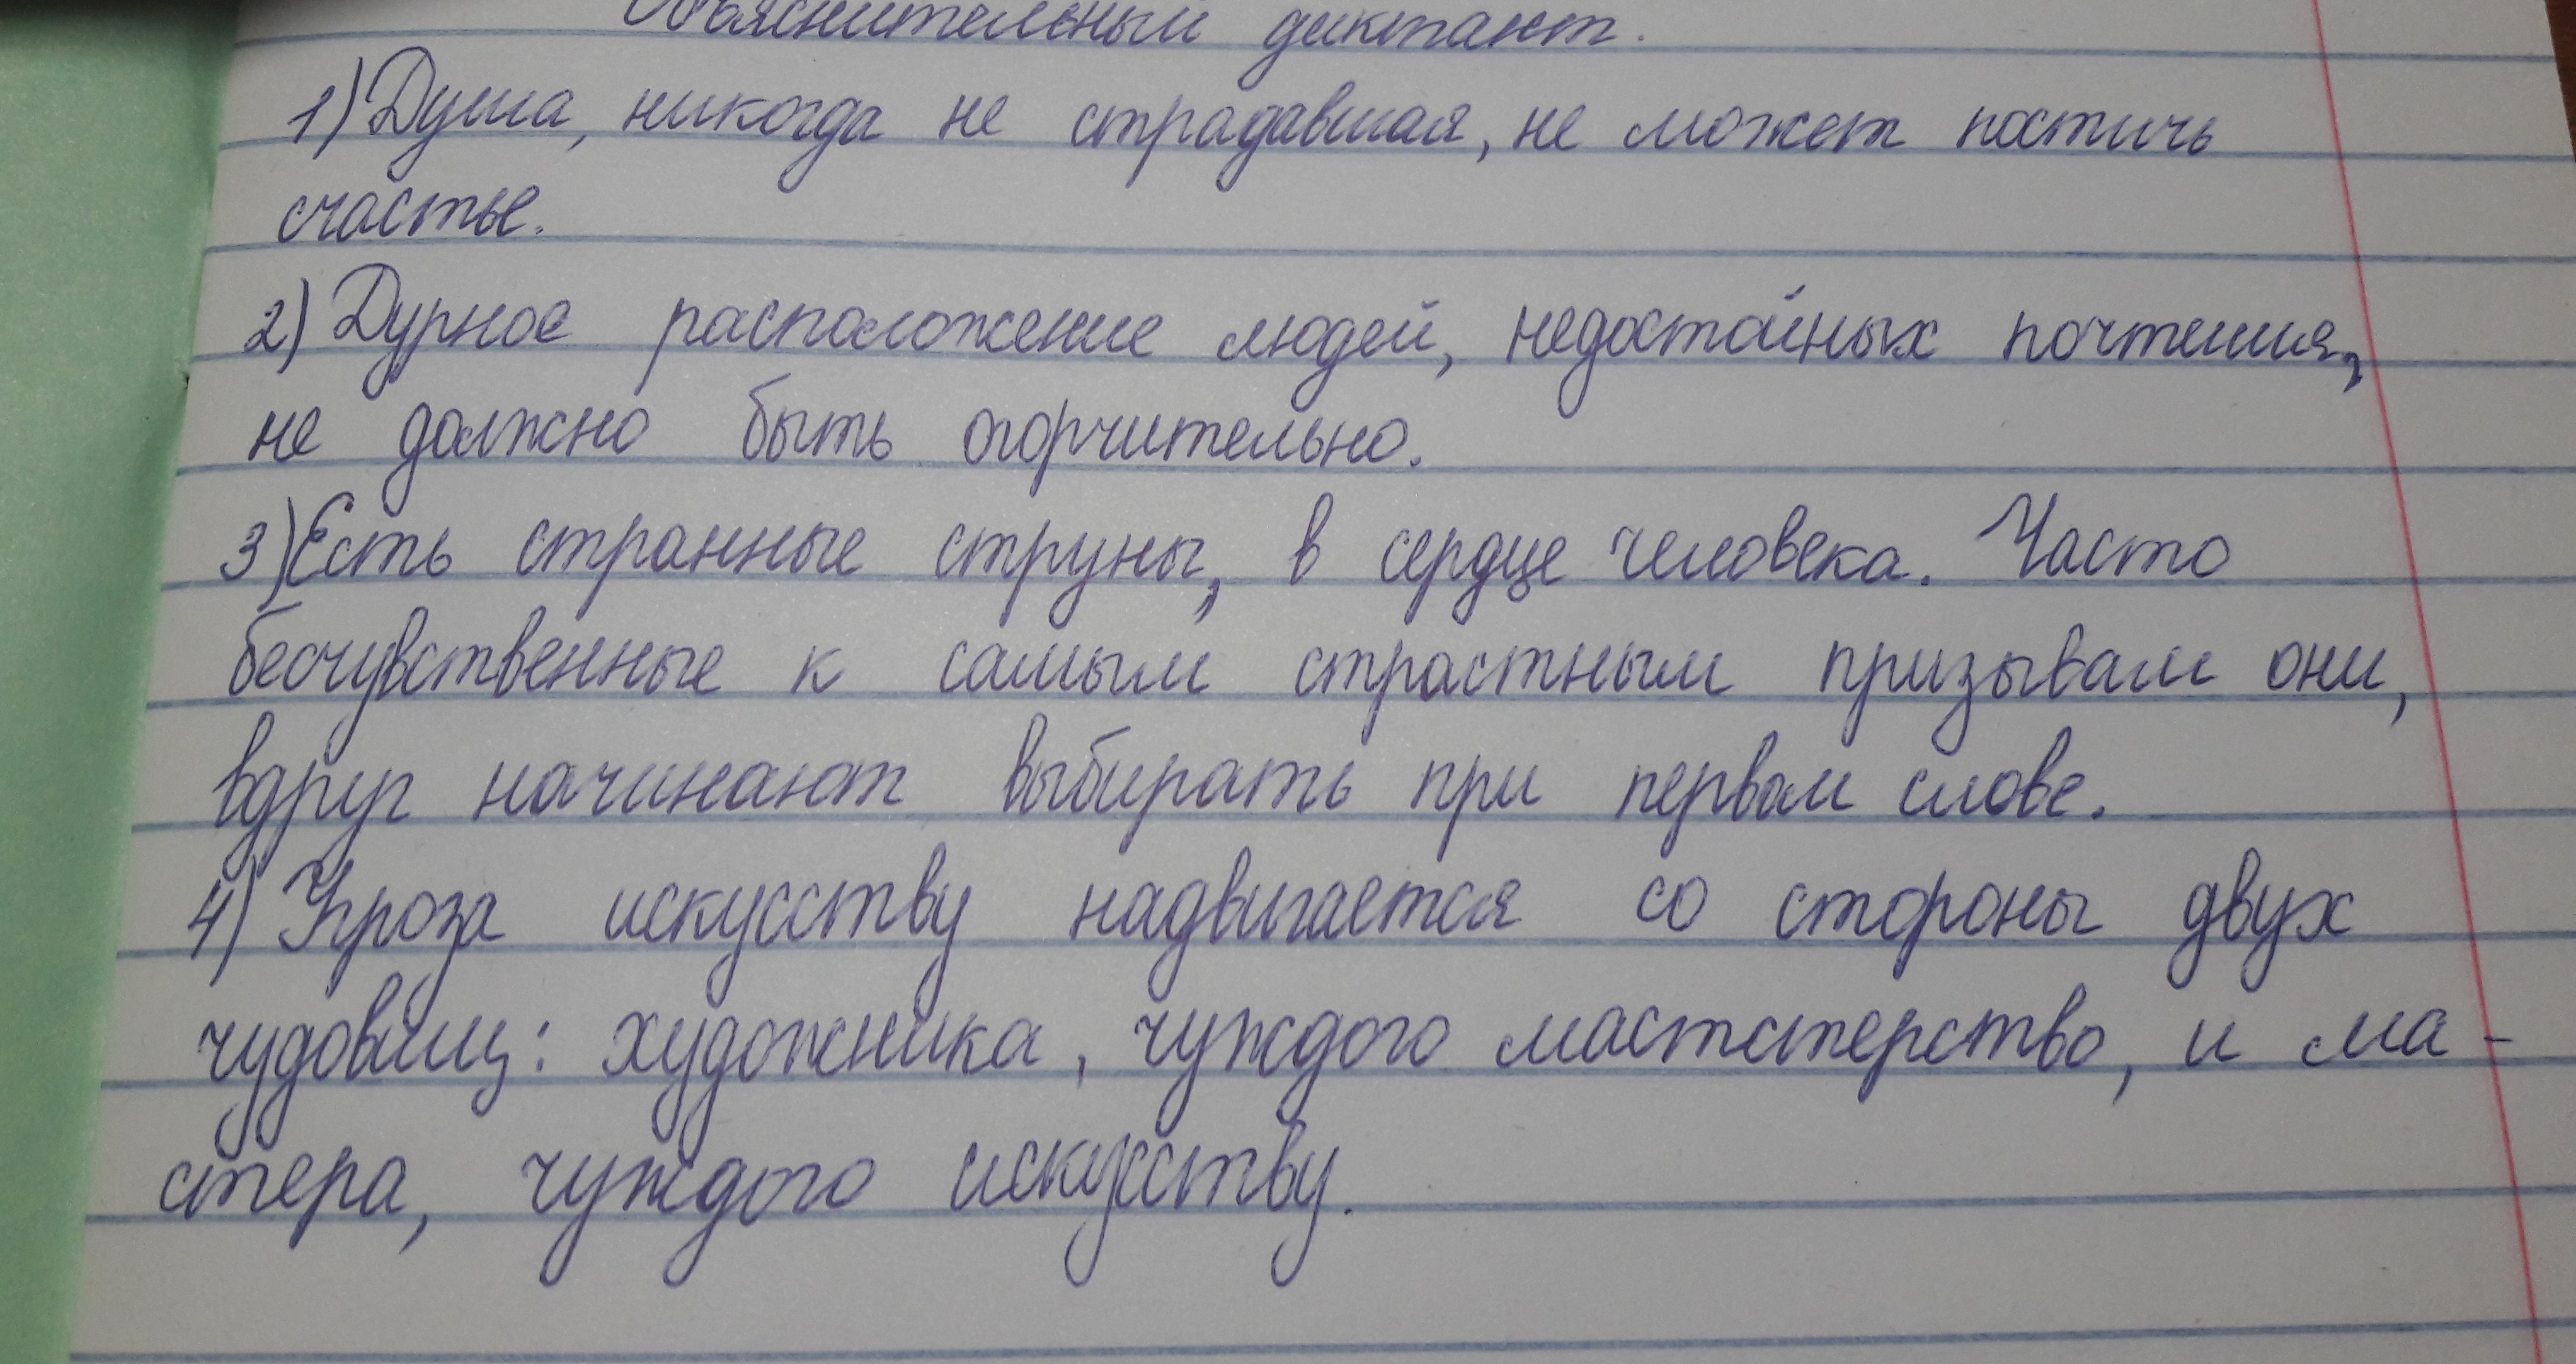 Объяснительный диктант.
1) Душа, никогда не страдавшая, не может постичь
счастье.
2) Дурное расположение людей, недостойных почтения,
не должно быть огорчительно.
3) Есть странные струны, в сердце человека. Часто
бесчувственные к самым страстным призывам они,
вдруг начинают выбирать при первом слове.
4) Угроза искусству надвигается со стороны двух
чудовищ: художника, чуждого мастстерство, и ма-
стера, чуждого искусству.